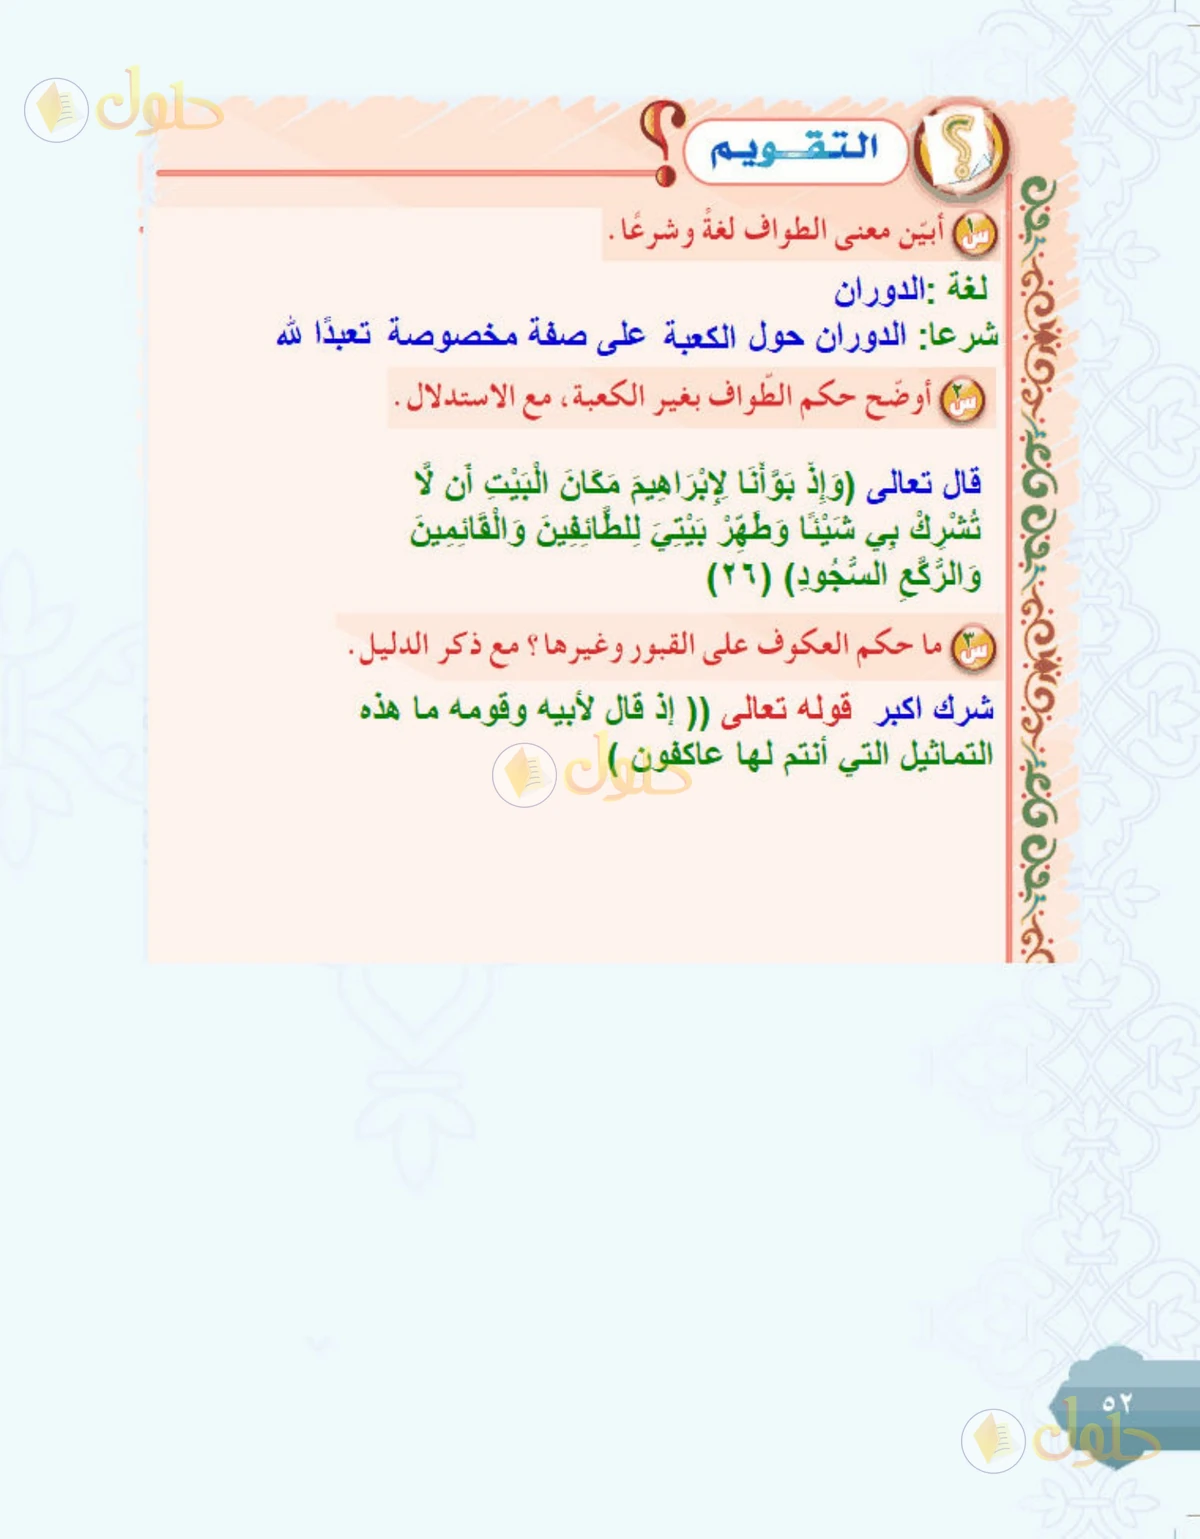 حلول
التقويم
س١ أبيّن معنى الطواف لغةً وشرعًا.
لغة :الدوران
شرعا: الدوران حول الكعبة على صفة مخصوصة تعبدًا لله
س٢ أوضّح حكم الطّواف بغير الكعبة، مع الاستدلال.
قال تعالى (وَإِذْ بَوَّأْنَا لِإِبْرَاهِيمَ مَكَانَ الْبَيْتِ أَن لَّا
تُشْرِكْ بِي شَيْئًا وَطَهِّرْ بَيْتِيَ لِلطَّائِفِينَ وَالْقَائِمِينَ
وَالرُّكَّعِ السُّجُودِ) (٢٦)
س٣ ما حكم العكوف على القبور وغيرها؟ مع ذكر الدليل.
شرك اكبر قوله تعالى (( إذ قال لأبيه وقومه ما هذه
التماثيل التي أنتم لها عاكفون )
حلول
٥٢
حلول